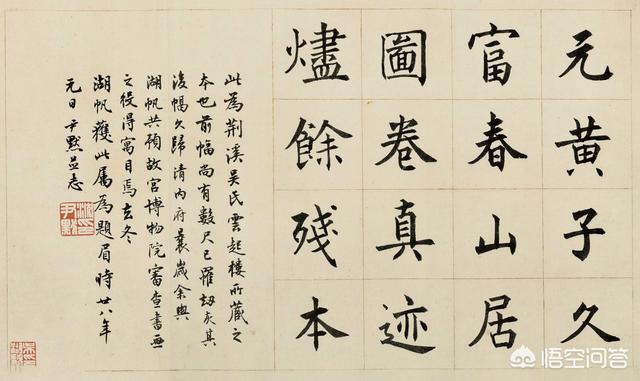 元黄子久
富春山居
圖卷真迹
燼餘殘本
此為荆溪吳氏雲起樓所藏之
本也前幅尚有數尺已罹劫灰其
後幅久歸清内府曩歲余與
湖帆共預故宫博物院審查書画
之役得寓目焉去冬
湖帆獲此属為題眉時廿八年
元日尹默並志
悟空问答